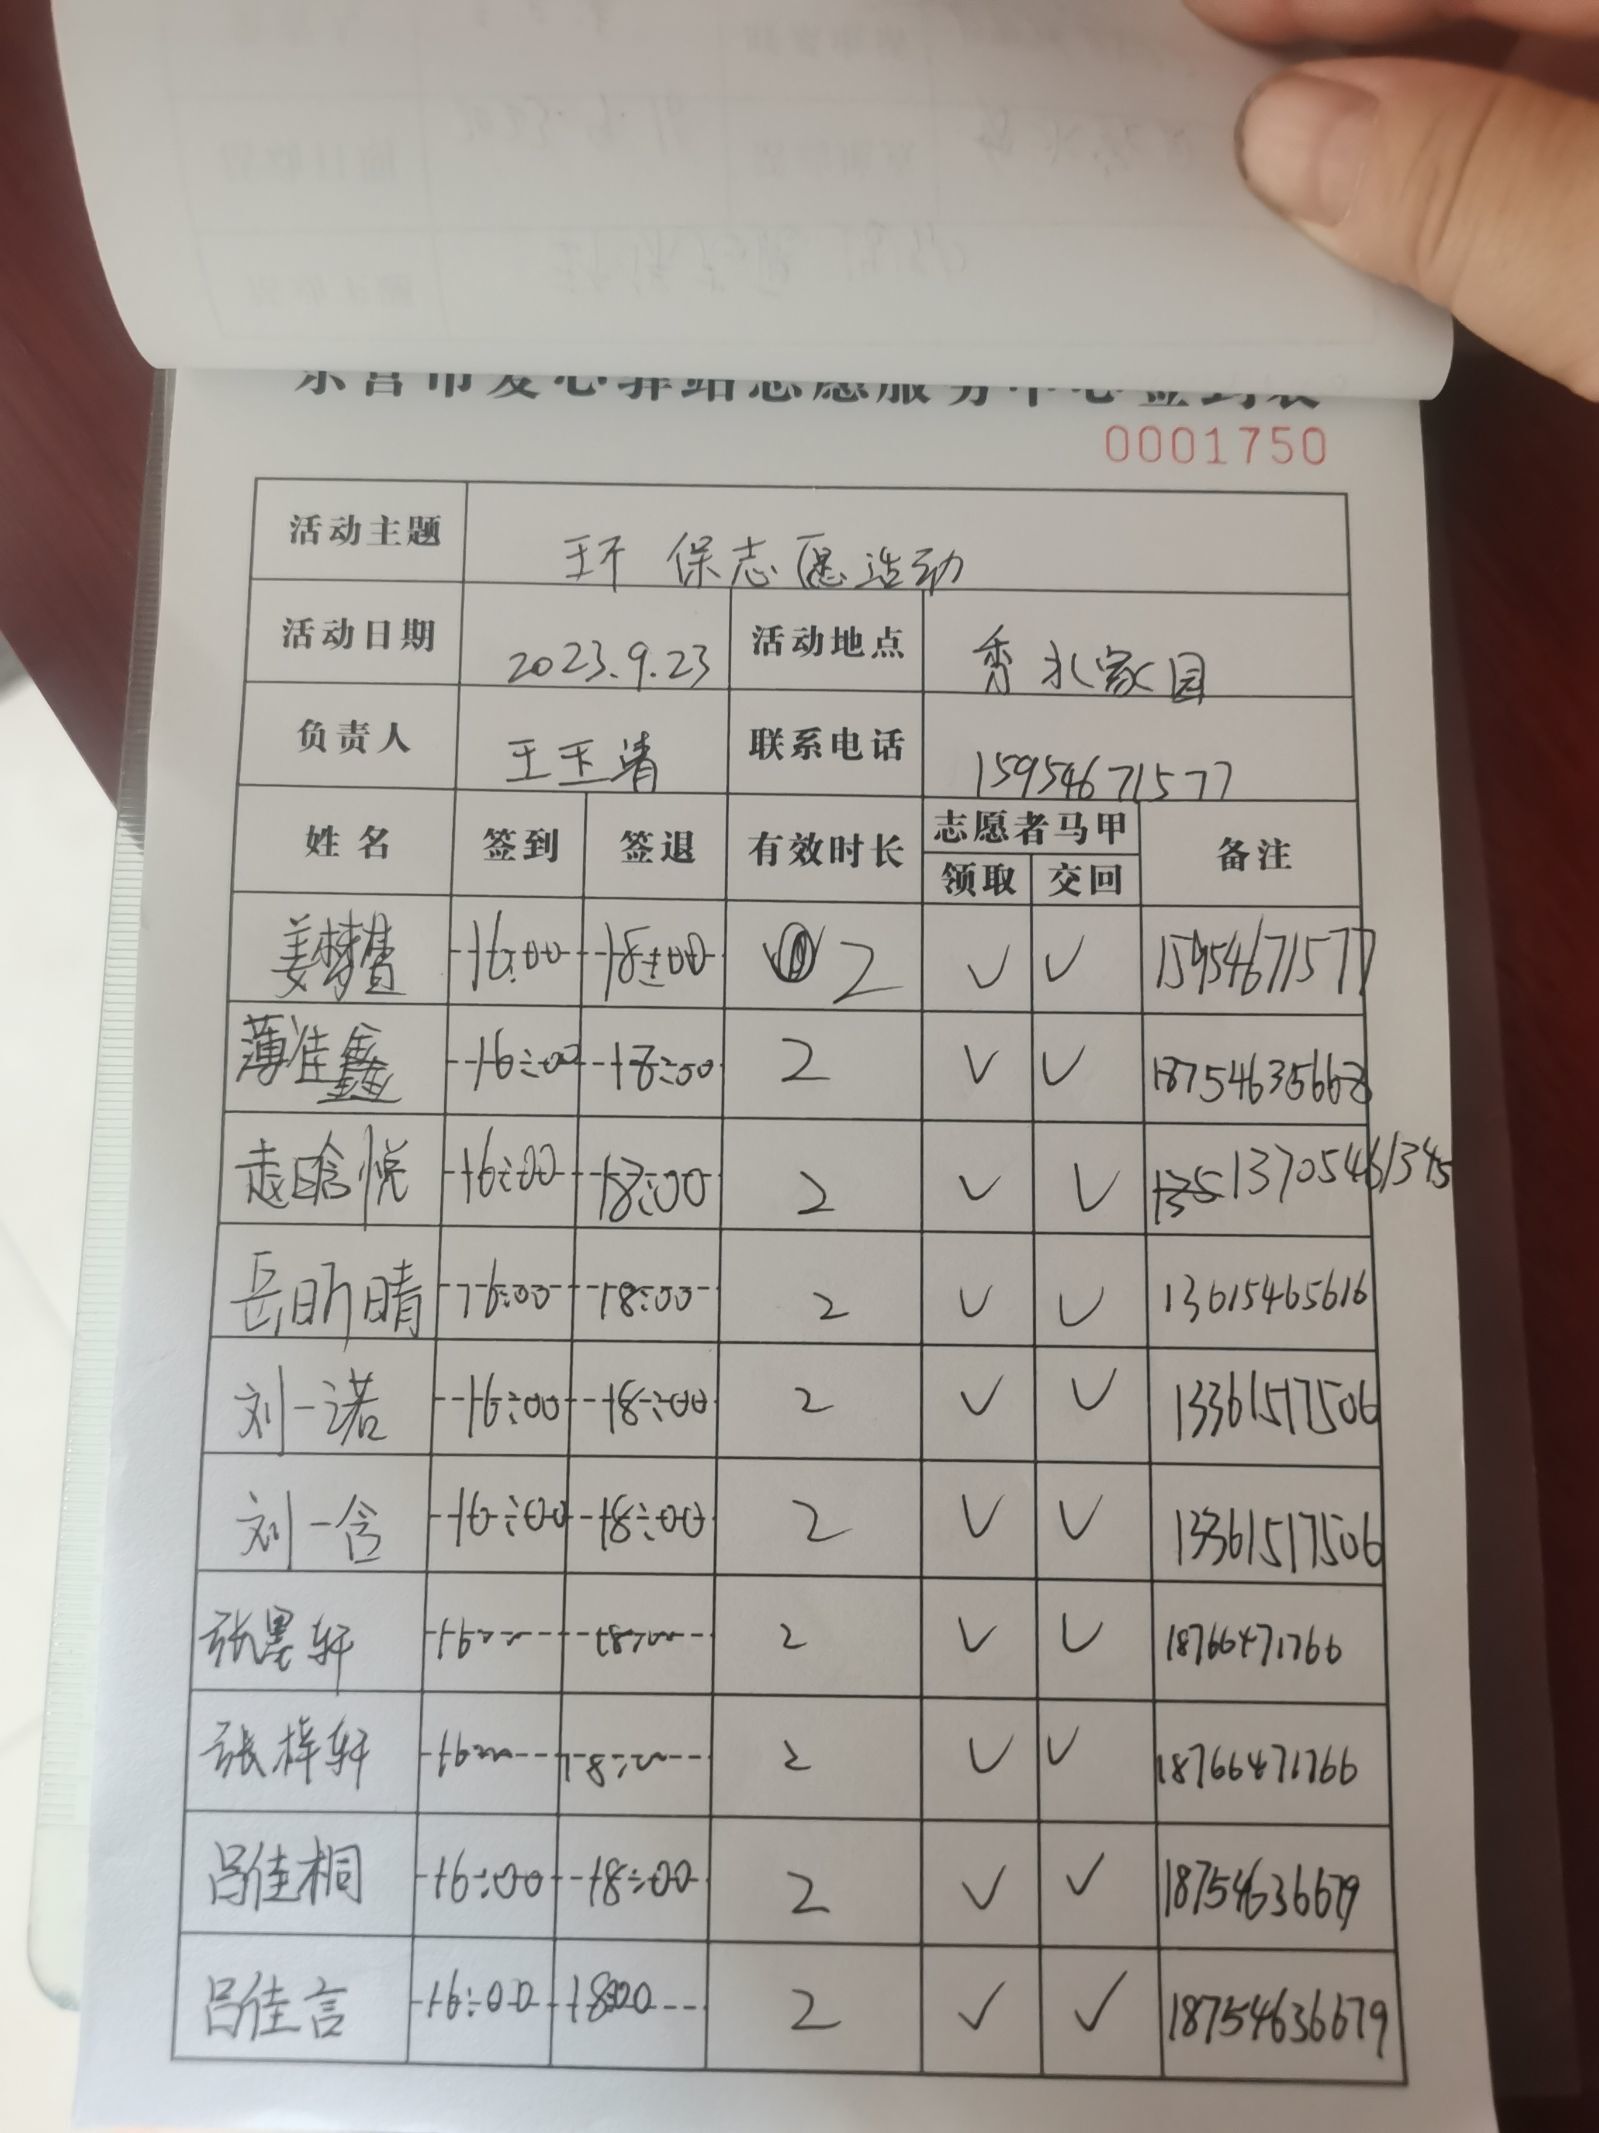 东营市爱心驿站志愿服务中心签到表
0001750
活动主题 环保志愿活动
活动日期 2023.9.23 活动地点 秀水家园
负责人 王玉清 联系电话 15954671577
姓名 签到 签退 有效时长 志愿者马甲 备注
领取 交回
16:00 18:00 2 √ √ 15954671577
薄佳鑫 16:00 18:00 2 √ √ 18754635668
赵晗悦 16:00 18:00 2 √ √ 13705461345
岳昕晴 16:00 18:00 2 √ √ 13615465616
刘一诺 16:00 18:00 2 √ √ 13361517506
刘一含 16:00 18:00 2 √ √ 13361517506
张墨轩 16:00 18:00 2 √ √ 18766471766
张梓轩 16:00 18:00 2 √ √ 18766471766
吕佳桐 16:00 18:00 2 √ √ 18754636679
吕佳言 16:00 18:00 2 √ √ 18754636679